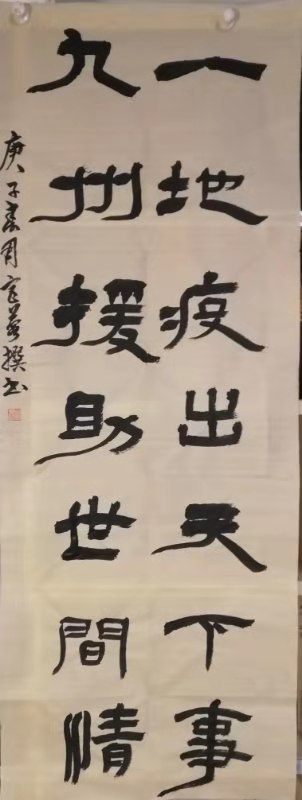 一地疫出天下事
九州援助世間情
庚子春周撰书